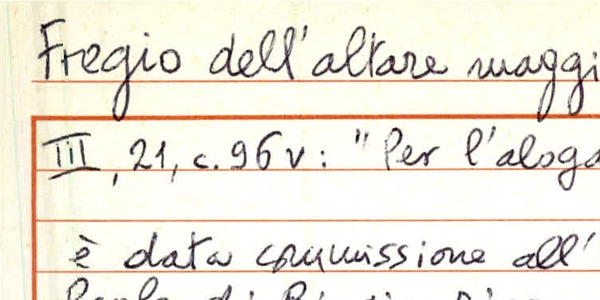 Fregio dell'altare maggi
III, 21, c. 96 v: "Per l'aloga
è data commissione all'